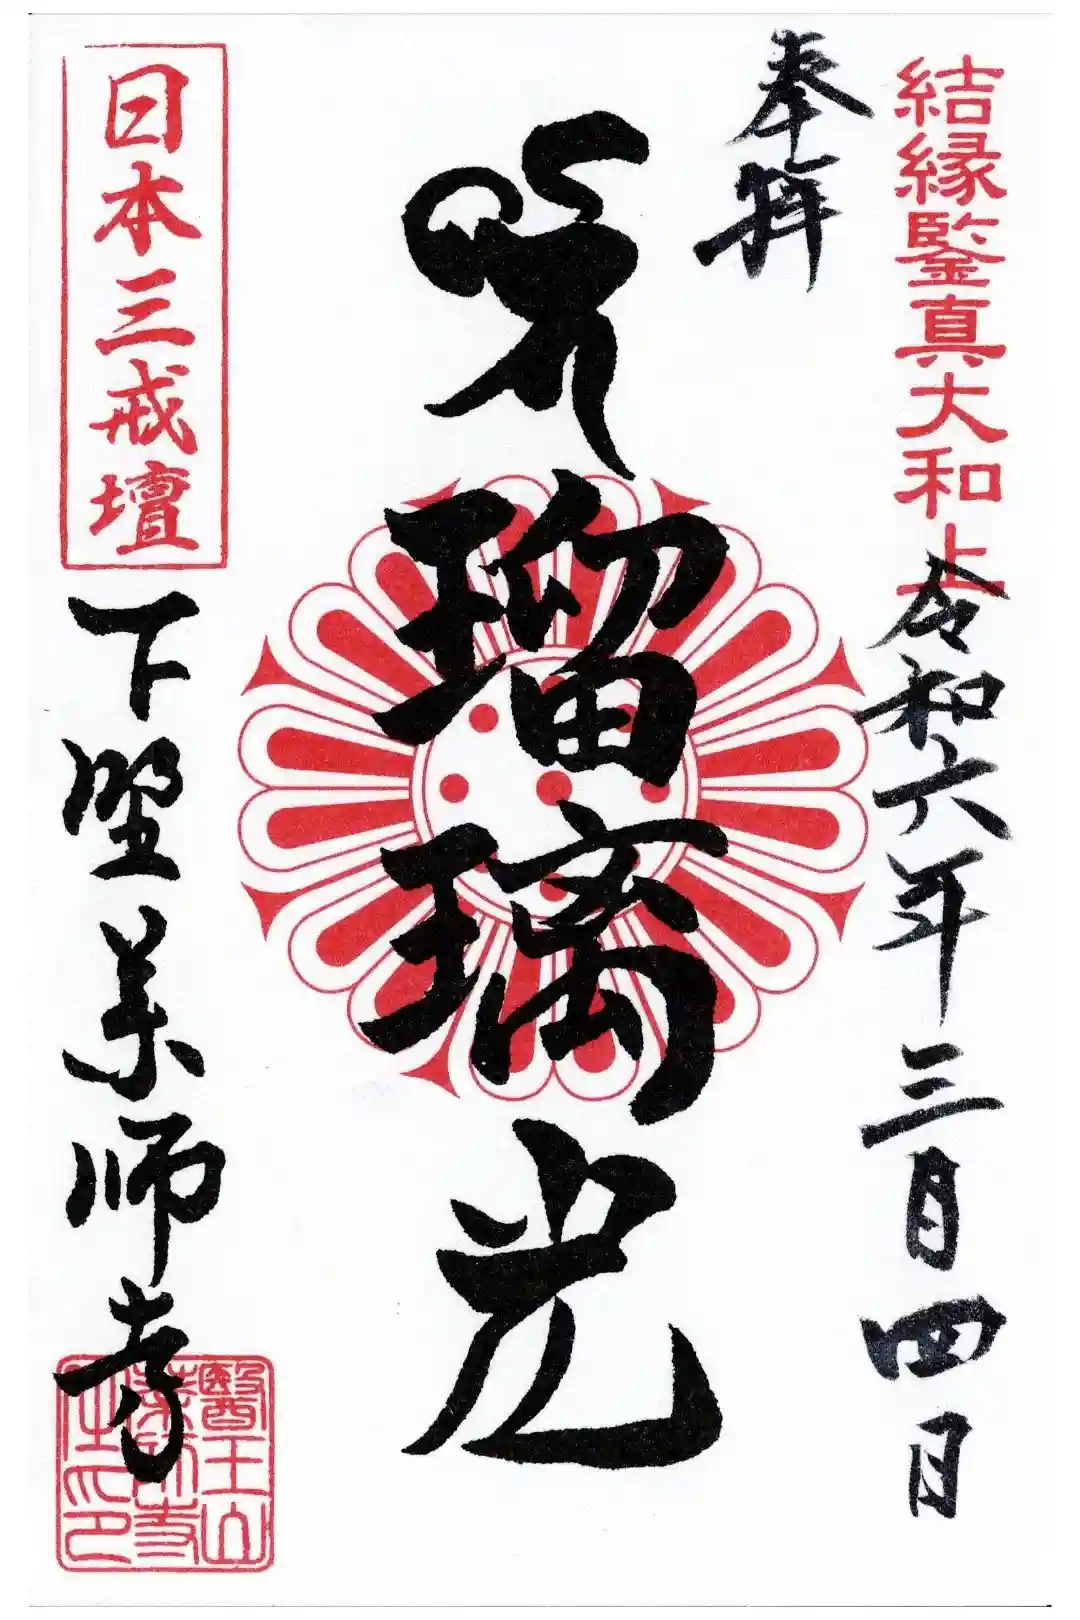 結縁鑒真大和上
奉拝
令和六年三月四日
瑠璃光
日本三戒壇
下野薬師寺
醫王山
薬師寺
主印